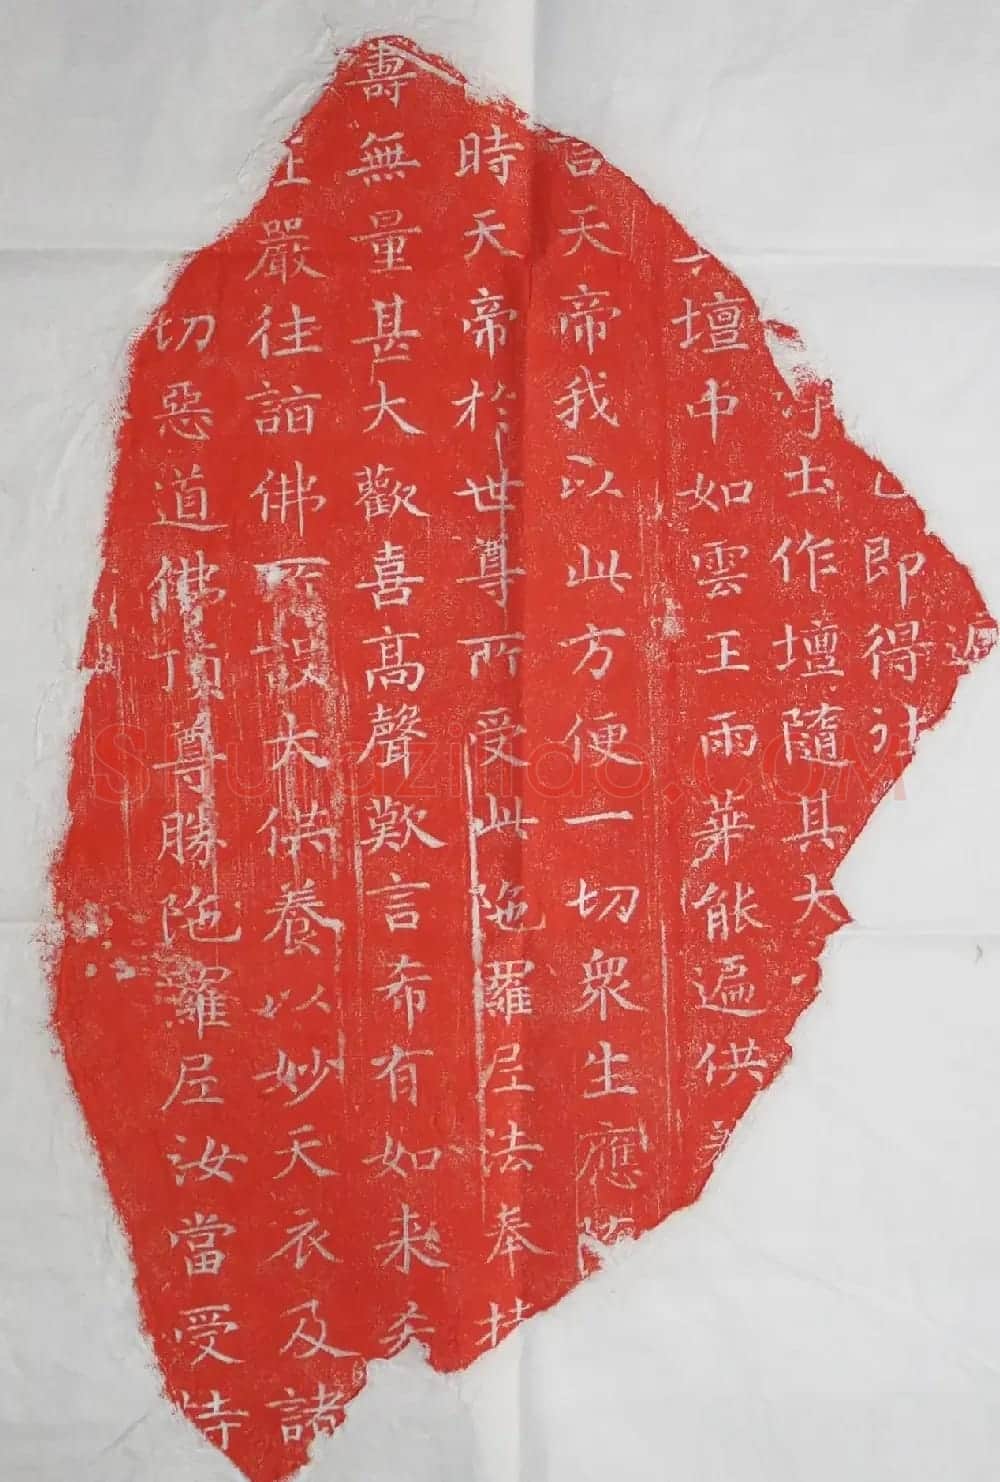 即得往
净土作壇隨其大
壇中如雲王雨華能遍供養
言天帝我以此方便一切衆生應
時天帝於世尊所受此陁羅尼法奉持
壽無量甚大歡喜高聲歎言希有如来
嚴往詣佛所設大供養以妙天衣及諸
切惡道佛頂尊勝陁羅尼汝當受持
Shufazindao.COM